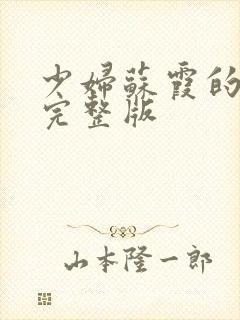 少婦蘇霞的
完整版
山本隆一郎